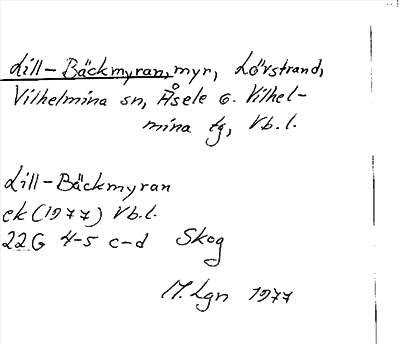 Lill-Bäckmyran, myr, Lövstrand,
Vilhelmina sn, Åsele o. Vilhel-
mina tg, Vb.l.
Lill-Bäckmyran
ek (1977) Vb.l.
22G 4-5 c-d Skog
M.Lgn 1977